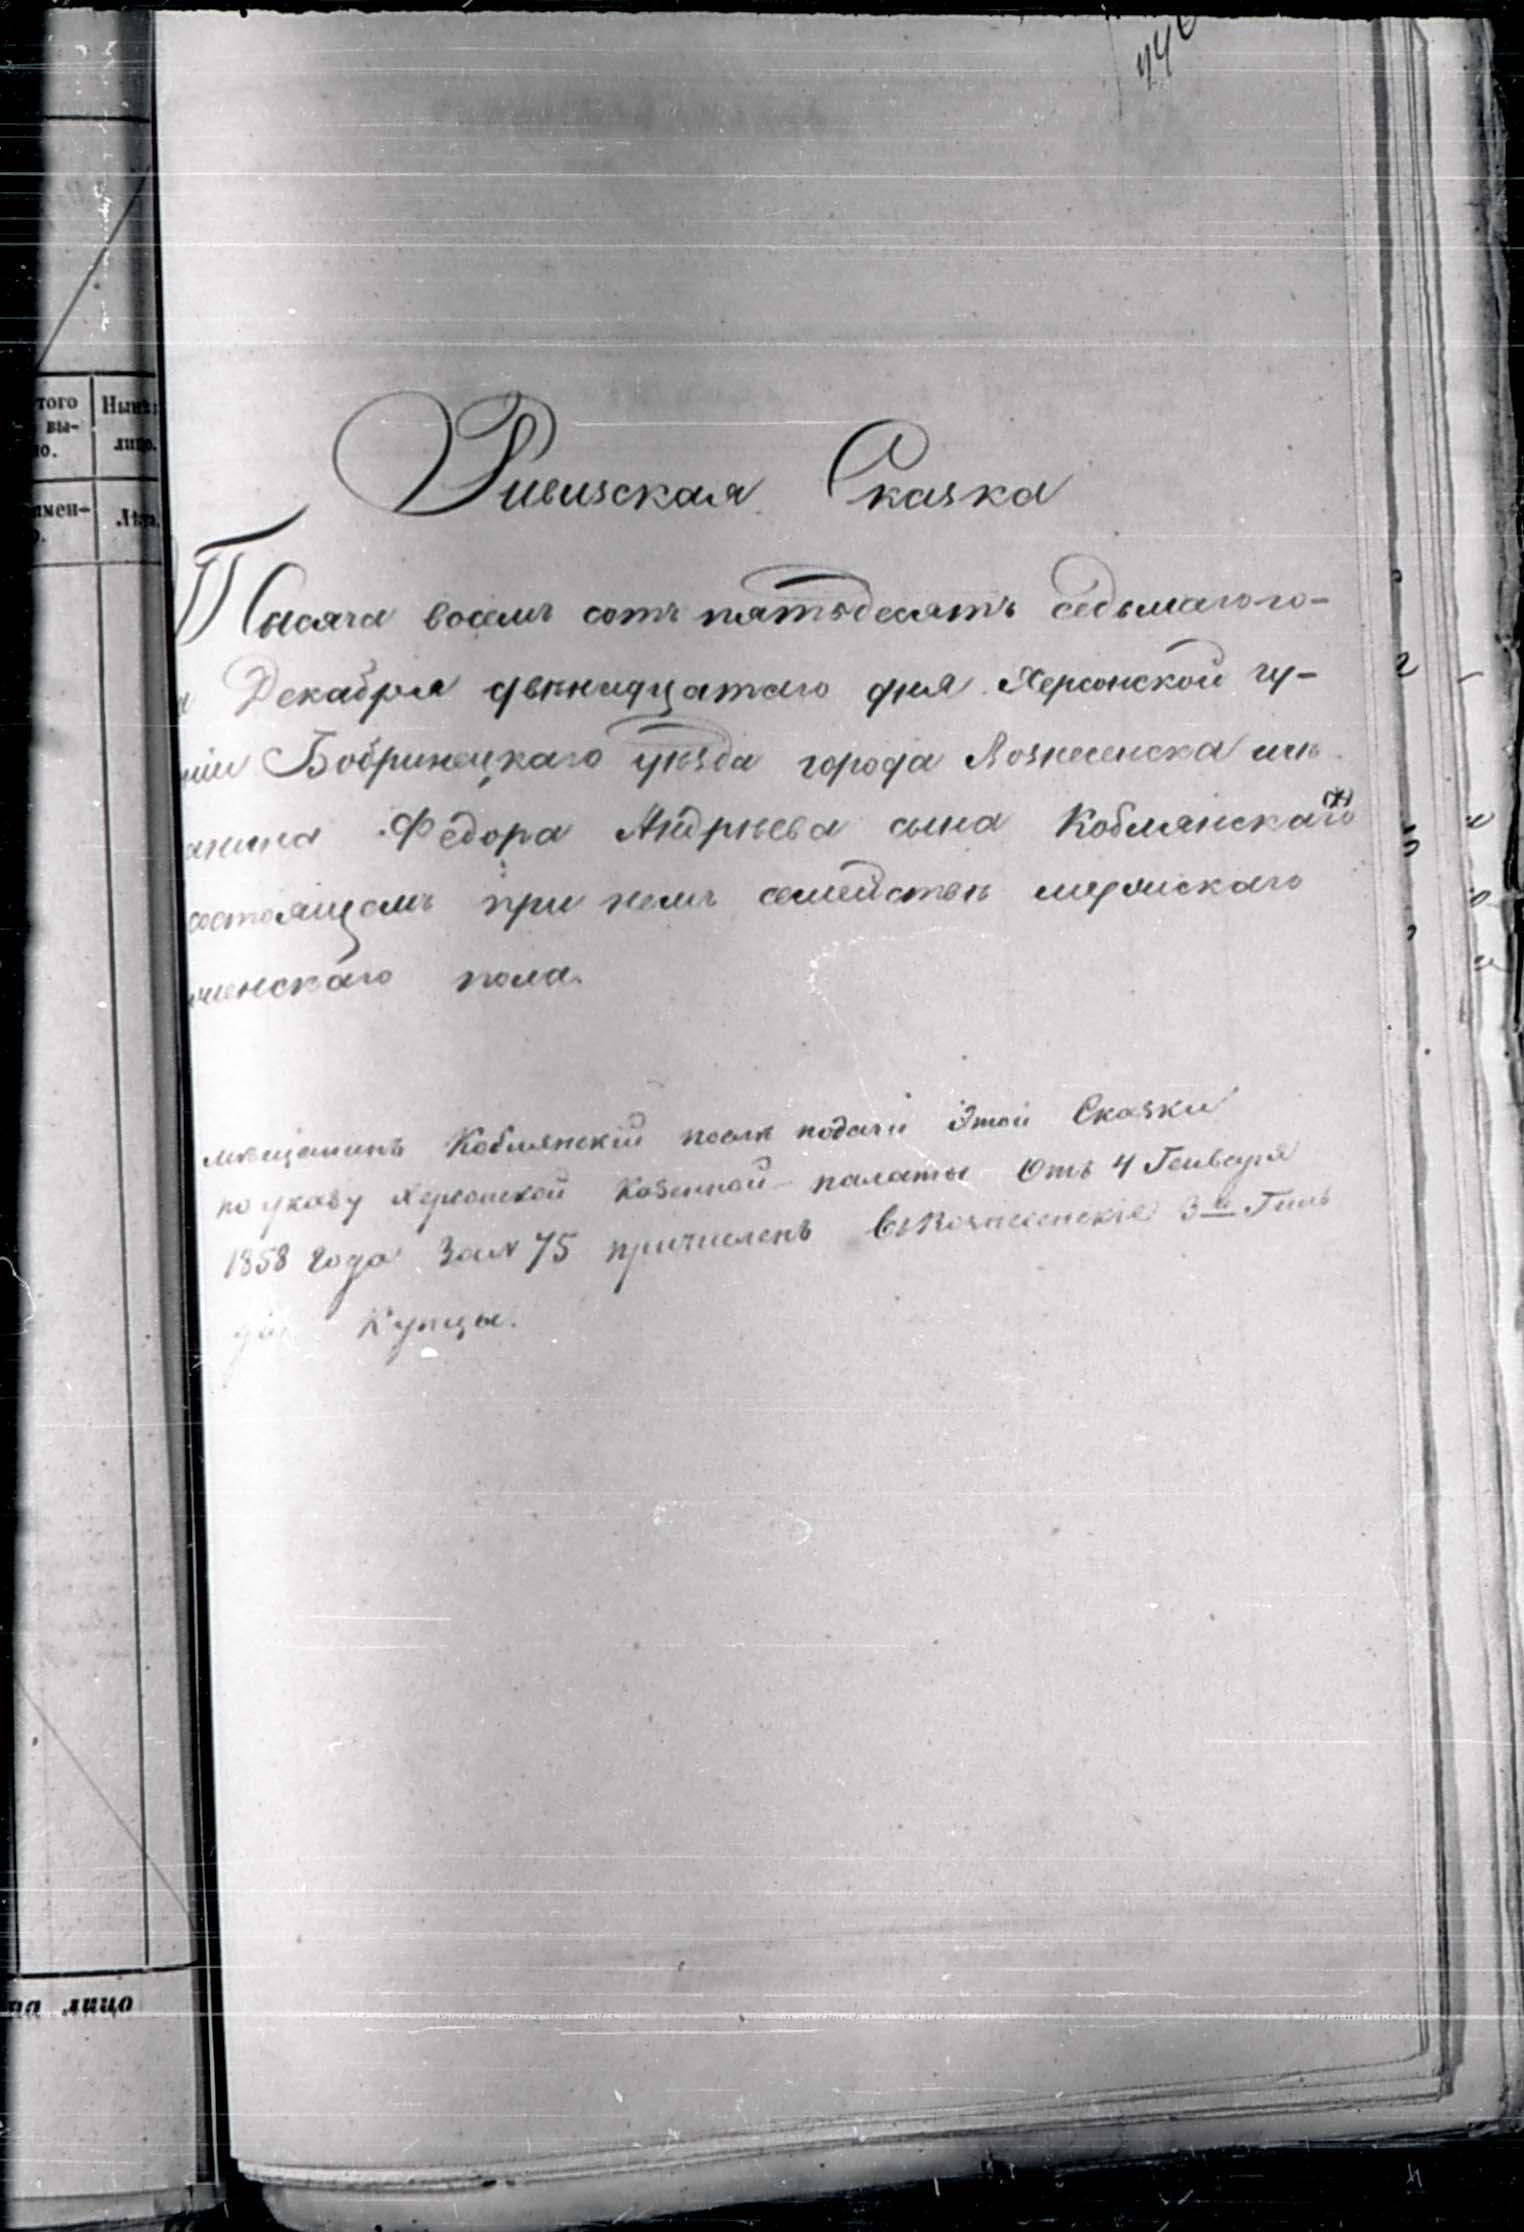 440
того
вы-
но.
Нынѣ
лицо.
имен-
о.
Лѣта.
на лицо
Ривизская Сказка
Тысяча восемъ сотъ пятьдесятъ седьмаго го-
а Декабря двѣнидцатаго дня Херсонской гу-
ніи Бобринецкаго уѣзда города Вознесенска мѣ
анина Федора Андрѣева сына Коблянскаго (*)
состоящемъ при немъ семействѣ мужискаго
женскаго пола.
мѣщанинъ Коблянскій послѣ подачи Этой Сказки
по указу Херсонской Казенной палаты Отъ 4 Генваря
1858 года За № 75 причисленъ Въ Вознесенскіе 3й Гиль
діи Купцы.